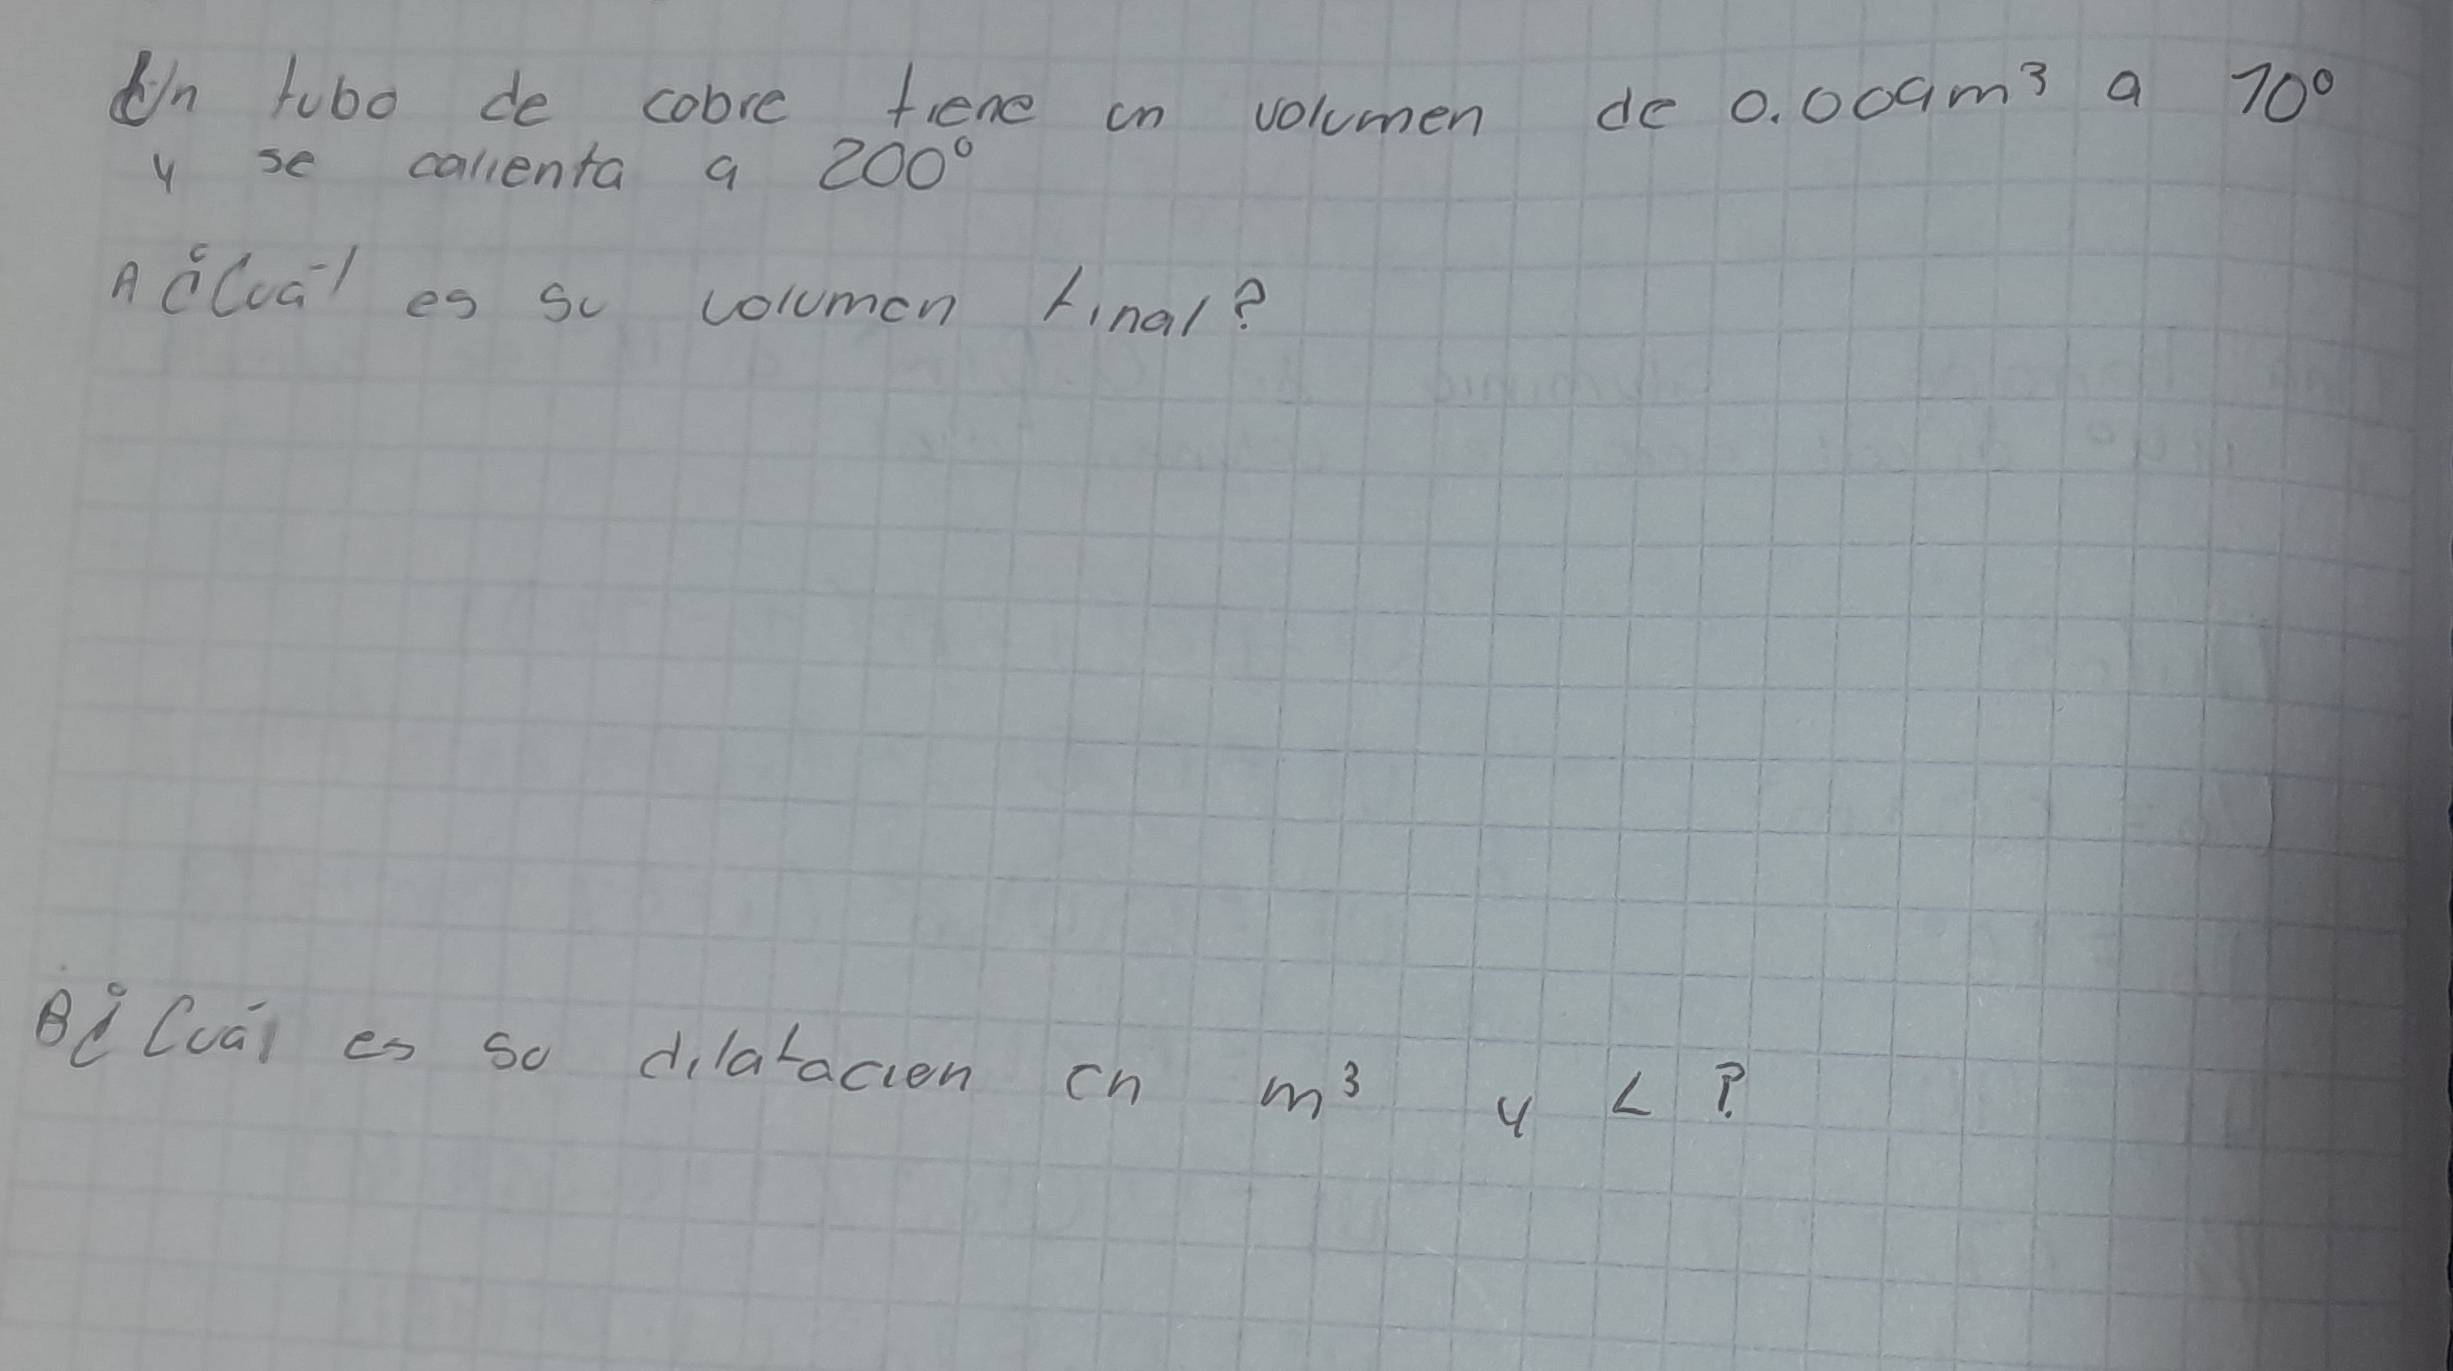 Un tubo de cobre tiene un volumen de 0.009m³ a 10°
y se calienta a 200°
A ¿Cuál es su volumen final?
B ¿Cuál es su dilatacion en m³ y L?